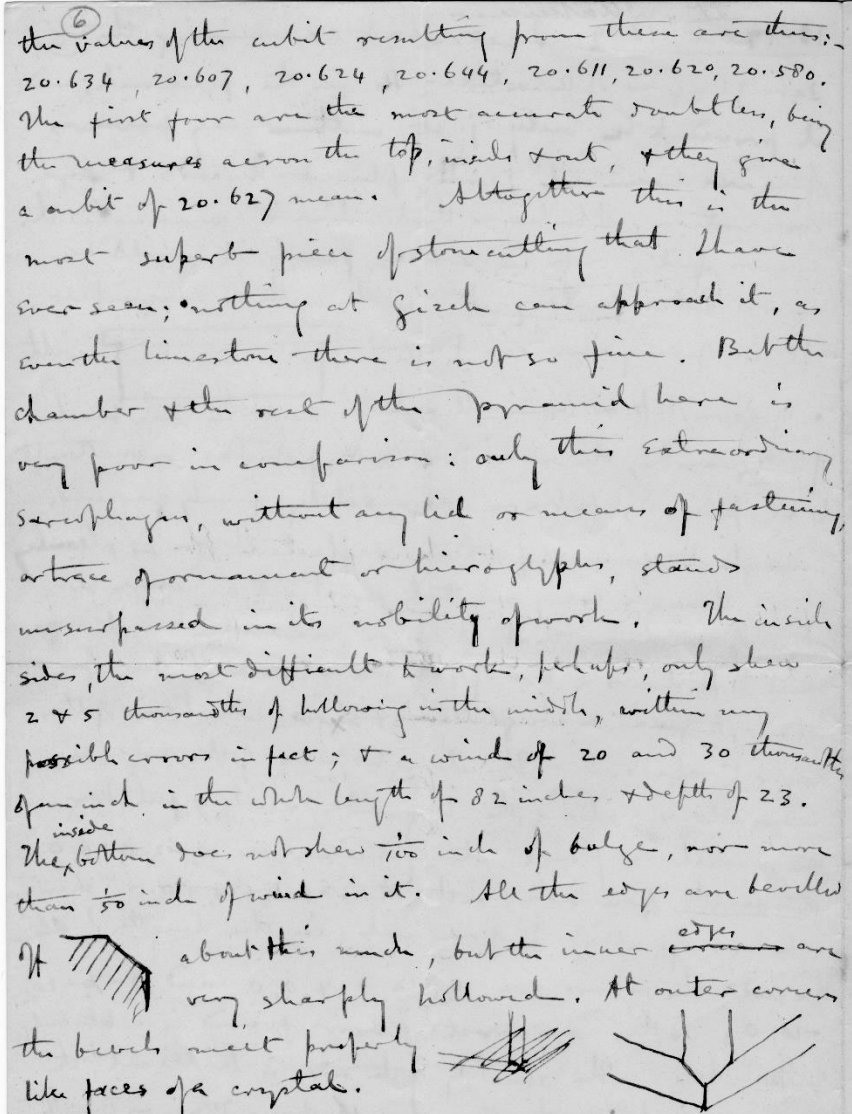 6
the values of the cubit resulting from these are thus:-
20.634, 20.607, 20.624, 20.644, 20.611, 20.620, 20.580.
The first four are the most accurate doubtless, being
the measures across the top, inside & out, & they give
a cubit of 20.627 mean. Altogether this is the
most superb piece of stonecutting that I have
ever seen; nothing at Gizeh can approach it, as
even the limestone there is not so fine. But the
chamber & the rest of the pyramid here is
very poor in comparison: only this extraordinary
sarcophagus, without any lid or means of fastening,
or trace of ornament or hieroglyphs, stands
unsurpassed in its nobility of work. The inside
sides, the most difficult to work, perhaps, only shew
2 & 5 thousandths of hollowing in the middle, within my
possible errors in fact; & a wind of 20 and 30 thousandths
of an inch in the whole length of 82 inches & depth of 23.
The inside bottom does not shew 1/100 inch of bulge, nor more
than 1/50 inch of wind in it. All the edges are bevelled
off about this much, but the inner edges are
very sharply hollowed. At outer corners
the bevels meet properly
like faces of a crystal.